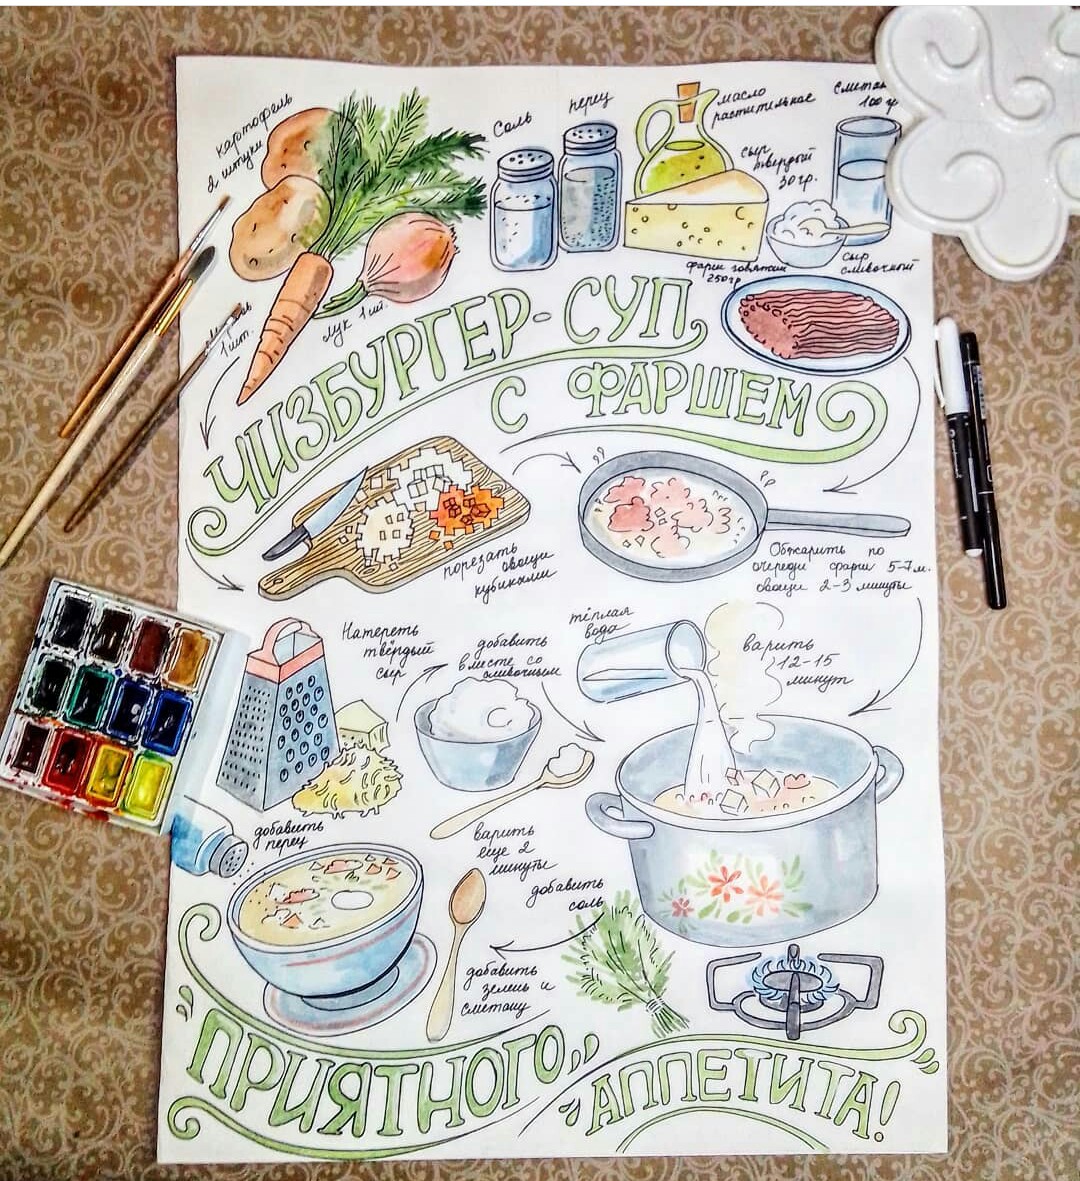 картофель
2 штуки
соль
перец
масло
растительное
сыр
твердый
30 гр.
сметан
100 гр
фарш говяжий
250 гр
сыр
сливочный
лук 1 шт.
1 шт.
ЧИЗБУРГЕР-СУП
С ФАРШЕМ
порезать
овощи
кубиками
Обжарить по
очереди фарш 5-7 м.
овощи 2-3 минуты
Натереть
твёрдый
сыр
добавить
вместе со
сливочным
тёплая
вода
варить
12-15
минут
добавить
перец
варить
еще 2
минуты
добавить
соль
добавить
зелень и
сметану
ПРИЯТНОГО
АППЕТИТА!